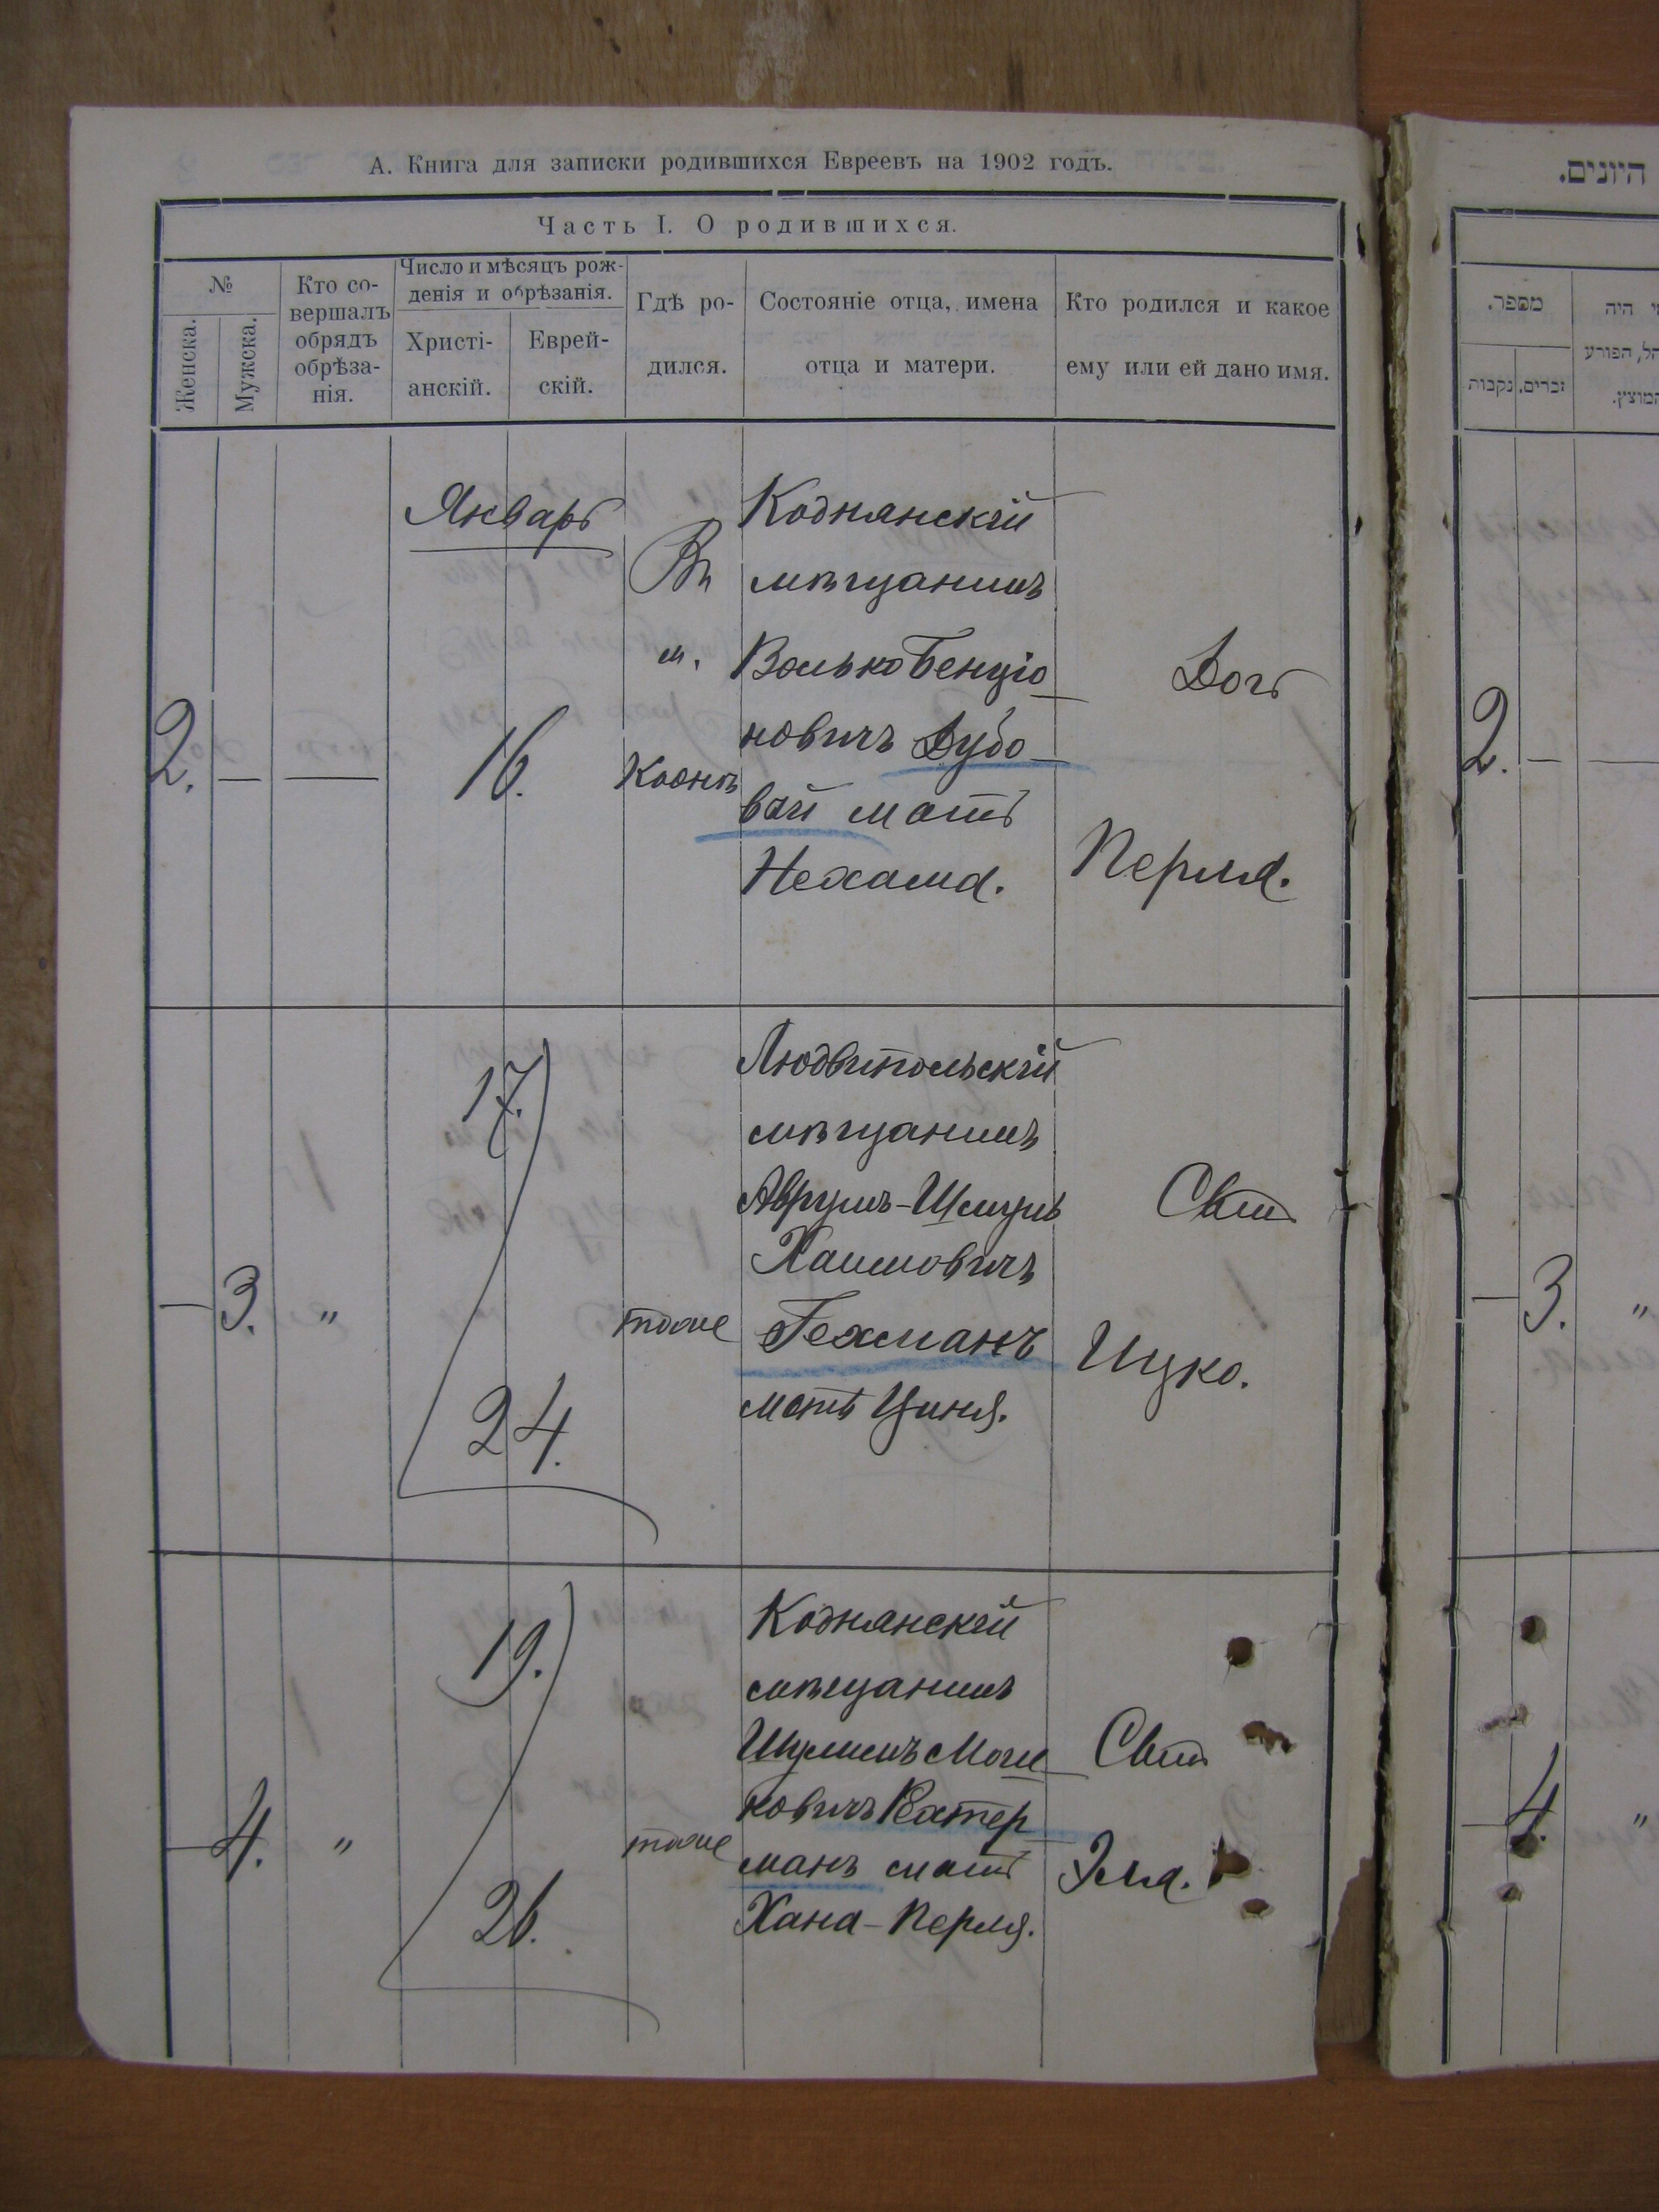 А. Книга для записки родившихся Евреевъ на 1902 годъ.
Часть I. О родившихся.
№
Женска.
Мужска.
Кто со-
вершалъ
обрядъ
обрѣза-
нія.
Число и мѣсяцъ рож-
денія и обрѣзанія.
Христі-
анскій.
Еврей-
скій.
Гдѣ ро-
дился.
Состояніе отца, имена
отца и матери.
Кто родился и какое
ему или ей дано имя.
2.
—
—
Январь
16.
Въ
м.
Коднѣ
Коднянскій
мѣщанинъ
Волько Бенціо
новичъ Дубо
вый мать
Нехама.
Дочь
Перля.
—
3.
"
17.
24.
тоже
Людвипольскій
мѣщанинъ
Аврумъ-Шмуль
Хаимовичъ
Гехманъ
мать Циня.
Сынъ
Ицко.
—
4.
"
19.
26.
тоже
Коднянскій
мѣщанинъ
Шулимъ Мош
ковичъ Вехтер
манъ мать
Хана-Перля.
Сынъ
Эля.
היונים.
מספר.
זכרים.
נקבות
י היה
הל, הפורע
המוצץ.
2.
—
—
—
3.
"
—
4.
"